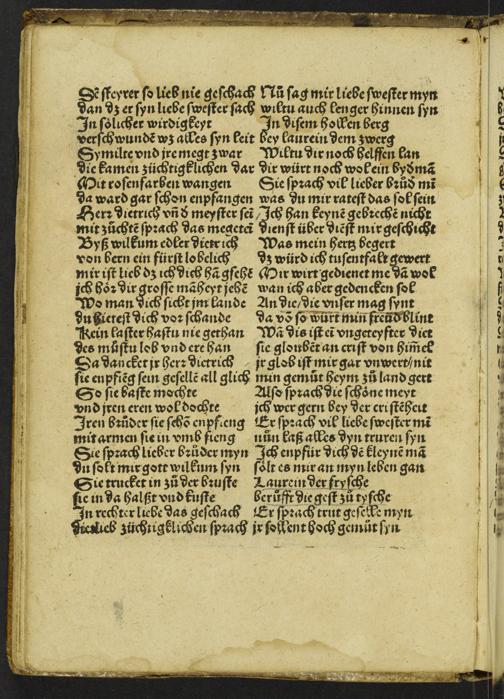 Sē steyrer so lieb nie geschach
dan dz er syn liebe swester sach
In sölicher wirdigkeyt
verschwundē wz alles syn leit
Symilte vnd jre megt zwar
die kamen züchtigklichen dar
Mit rosenfarben wangen
da ward gar schon enpfangen
Herz dietrich vn̄d meyster
mit züchtē sprach das megetē
Byß wilkum edler dietrich
von bern ein fürst lobelich
mir ist lieb dz ich dich hā gsehē
jch hör dir grosse māheyt jehē
Wo man dich sicht im lande
du bietest dich vor schande
Kein laster hastu nie gethan
des müstu lob vnd ere han
Da dancket jr herz dietrich
sie enpfiēg sein gesellē all glich
So sie baste mochte
vnd jren eren wol dochte
Iren brůder sie schō enpfieng
mit armen sie in vmb fieng
Sie sprach lieber brůder myn
du solt mir gott wilkum syn
Sie trucket in zů der bruste
sie in da halßt vnd kuste
In rechter liebe das geschach
die lieb züchtigklichen sprach
Nū sag mir liebe swester myn
wiltu auch lenger hinnen syn
In disem hollen berg
bey laurein dem zwerg
Wiltu dir noch helffen lan
dir würt noch wol ein bydmā
Sie sprach vil lieber brůd mī
was du mir ratest das sol sein
Ich han keynē gebrechē nicht
dienst über dienst mir geschicht
Was mein hertz begert
dz würd ich tusentfalt gewert
Mir wirt gedienet me dā wol
wan ich aber gedencken sol
An die/die vnser mag synt
da vō so würt min freud blint
Wā dis ist eī vngeteyfter diet
sie gloubēt an crist von him̄el
jr glob ist mir gar vnwert/mit
min gemüt heym zů land gert
Also sprach die schöne meyt
jch wer gern bey der cristēheit
Er sprach vil liebe swester mī
nůn laß alles dyn truren syn
Ich enpfür dich dē kleynē mā
sölt es mir an myn leben gan
Laurein der frysche
berůfft die gest zů tysche
Er sprach trut geselle myn
jr sollent hoch gemüt syn